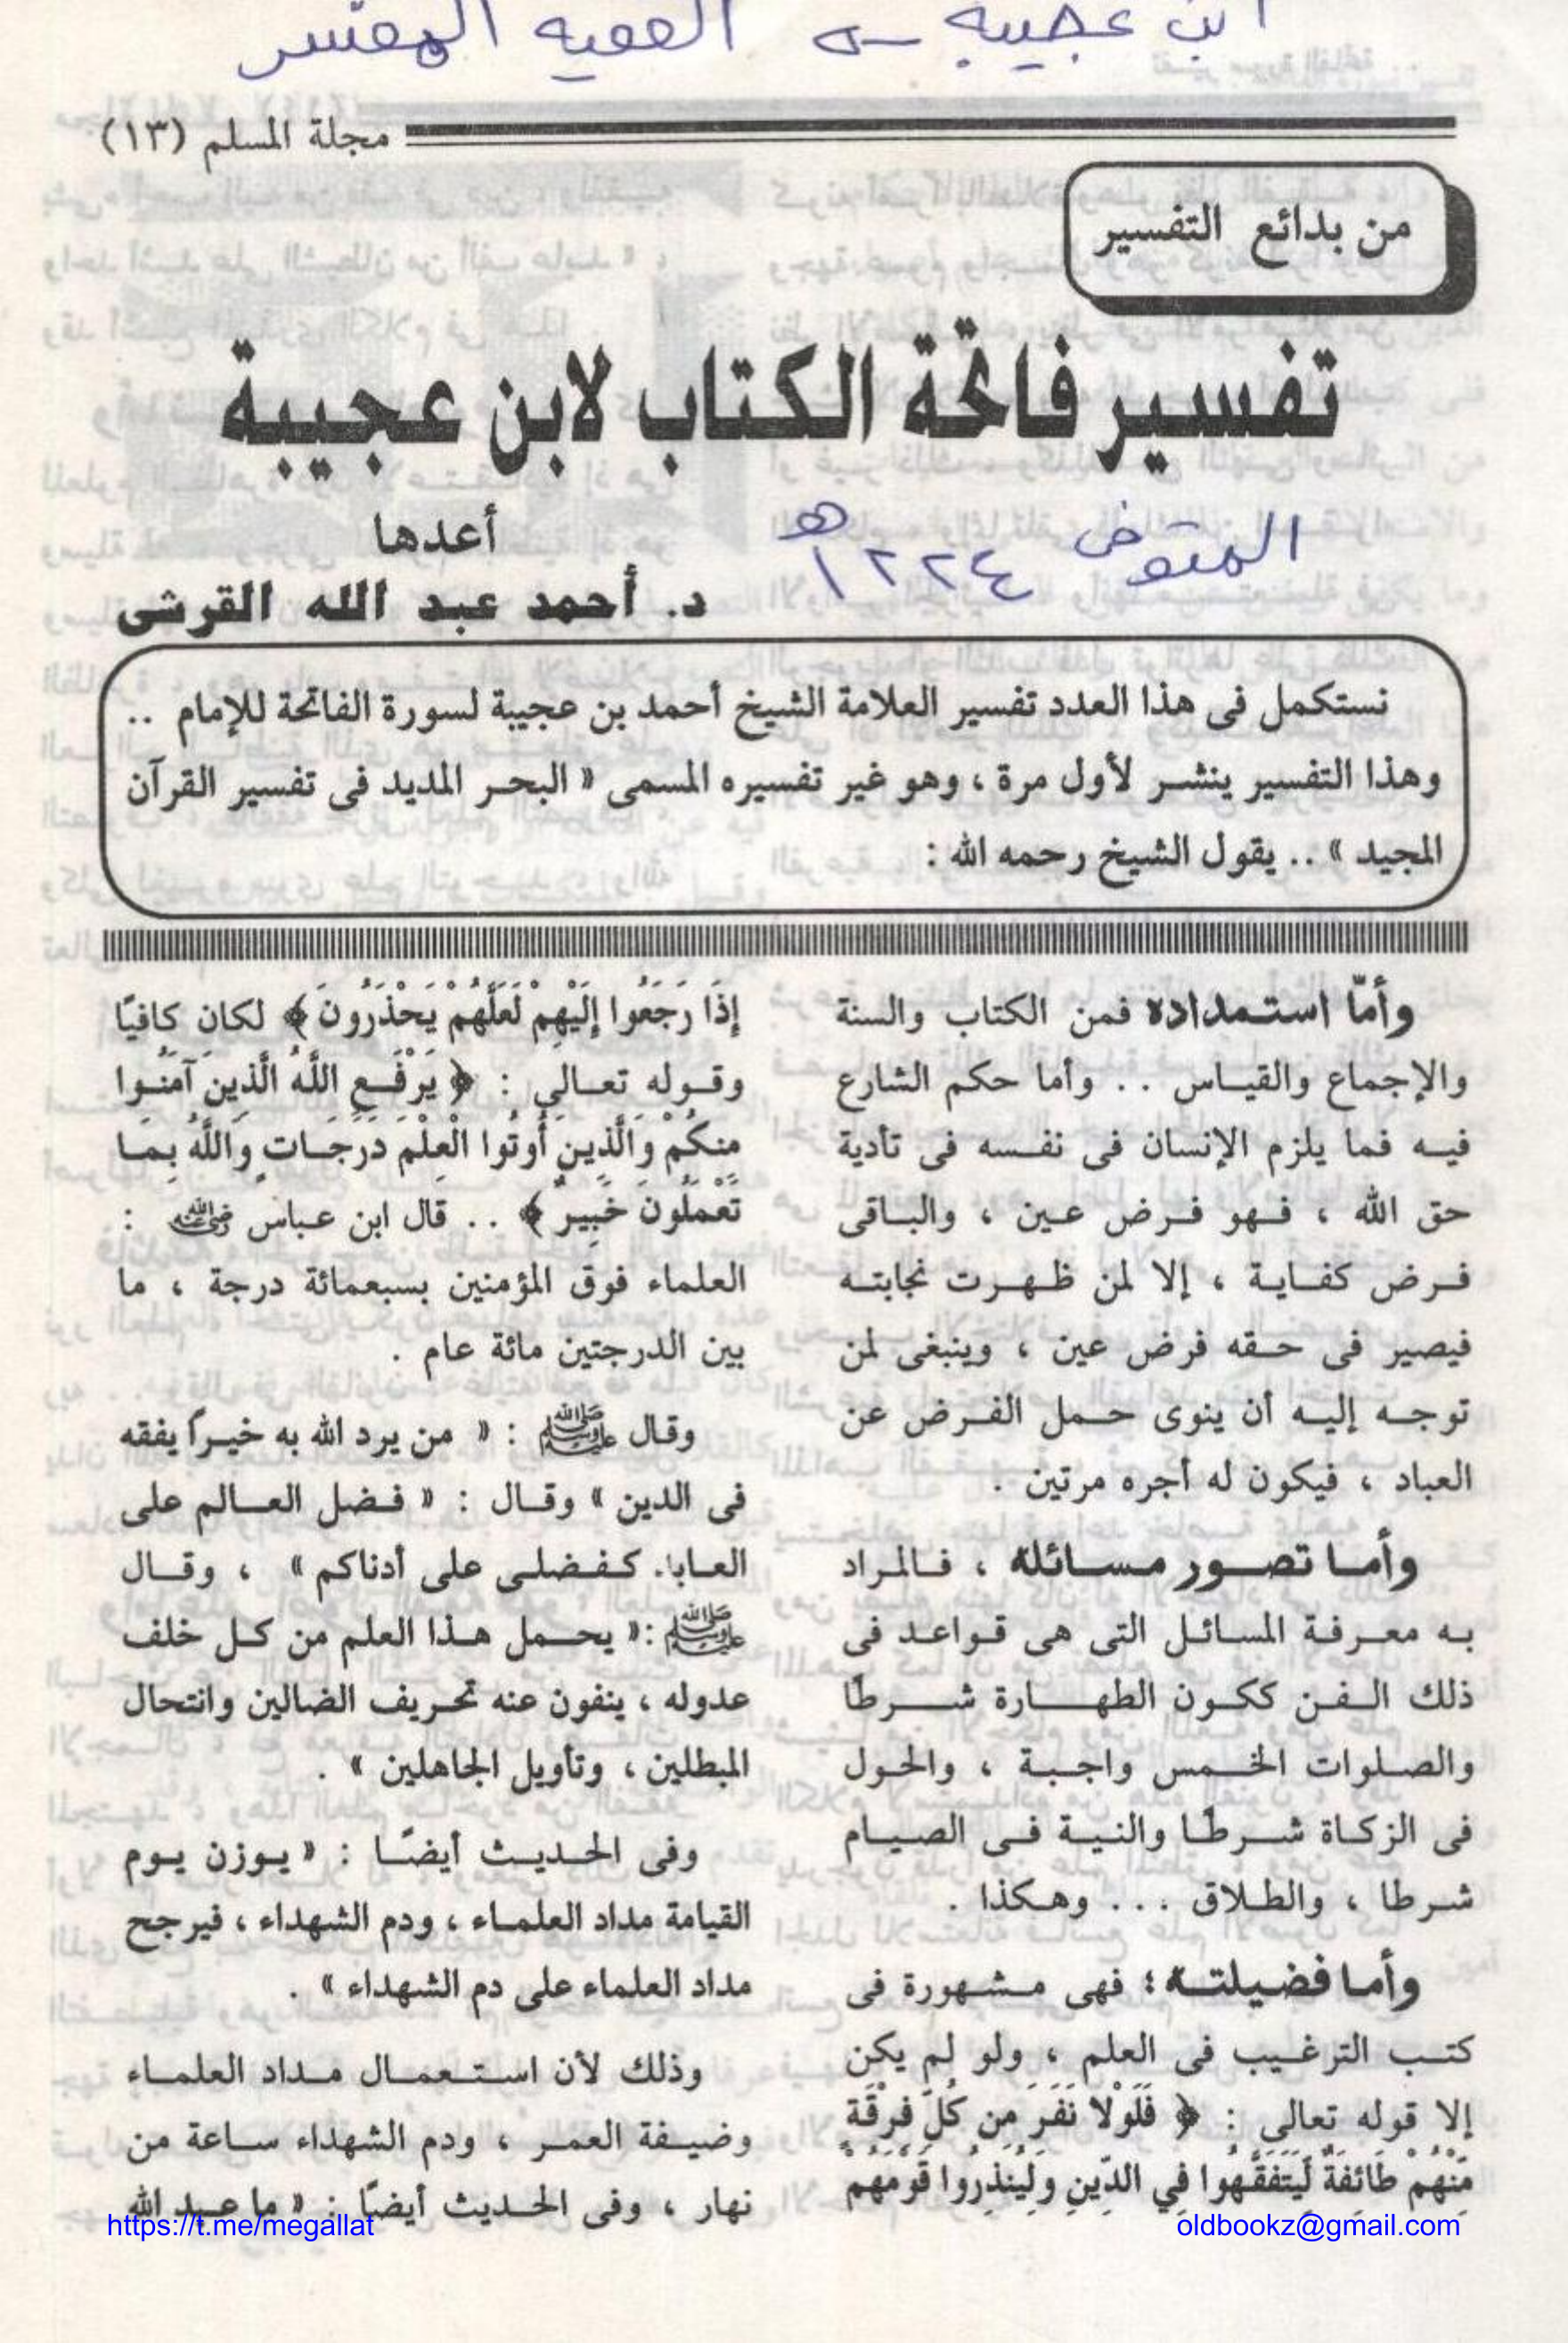 ابن عجيبة – الفقيه المفسر
مجلة المسلم (١٣)
من بدائع التفسير
تفسير فاتحة الكتاب لابن عجيبة
المتوفى ١٢٢٤هـ
أعدها
د. أحمد عبد الله القرشى
نستكمل فى هذا العدد تفسير العلامة الشيخ أحمد بن عجيبة لسورة الفاتحة للإمام ..
وهذا التفسير ينشر لأول مرة ، وهو غير تفسيره المسمى « البحر المديد فى تفسير القرآن
المجيد » .. يقول الشيخ رحمه الله :
وأمّا استمداده فمن الكتاب والسنة
والإجماع والقياس .. وأما حكم الشارع
فيه فما يلزم الإنسان فى نفسه فى تأدية
حق الله ، فهو فرض عين ، والباقى
فرض كفاية ، إلا لمن ظهرت نجابته
فيصير فى حقه فرض عين ، وينبغى لمن
توجه إليه أن ينوى حمل الفرض عن
العباد ، فيكون له أجره مرتين .
وأما تصور مسائله ، فالمراد
به معرفة المسائل التى هى قواعد فى
ذلك الفن ككون الطهارة شرطًا
والصلوات الخمس واجبة ، والحول
فى الزكاة شرطًا والنية فى الصيام
شرطا ، والطلاق ... وهكذا .
وأما فضيلته ؛ فهى مشهورة فى
كتب الترغيب فى العلم ، ولو لم يكن
إلا قوله تعالى : ﴿ فَلَوْلا نَفَرَ مِن كُلِّ فِرْقَةٍ
مِّنْهُمْ طَائِفَةٌ لِّيَتَفَقَّهُوا فِي الدِّينِ وَلِيُنذِرُوا قَوْمَهُمْ
إِذَا رَجَعُوا إِلَيْهِمْ لَعَلَّهُمْ يَحْذَرُونَ ﴾ لكان كافيًا
وقوله تعالى : ﴿ يَرْفَعِ اللَّهُ الَّذِينَ آمَنُوا
مِنكُمْ وَالَّذِينَ أُوتُوا الْعِلْمَ دَرَجَاتٍ وَاللَّهُ بِمَا
تَعْمَلُونَ خَبِيرٌ ﴾ .. قال ابن عباس رضي الله عنه :
العلماء فوق المؤمنين بسبعمائة درجة ، ما
بين الدرجتين مائة عام .
وقال ﷺ : « من يرد الله به خيراً يفقه
فى الدين » وقال : « فضل العالم على
العابد كفضلى على أدناكم » ، وقال
ﷺ :« يحمل هذا العلم من كل خلف
عدوله ، ينفون عنه تحريف الضالين وانتحال
المبطلين ، وتأويل الجاهلين » .
وفى الحديث أيضًا : « يوزن يوم
القيامة مداد العلماء ، ودم الشهداء ، فيرجح
مداد العلماء على دم الشهداء » .
وذلك لأن استعمال مداد العلماء
وضيفة العمر ، ودم الشهداء ساعة من
نهار ، وفى الحديث أيضًا : « ما عبد الله
https://t.me/megallat
oldbookz@gmail.com